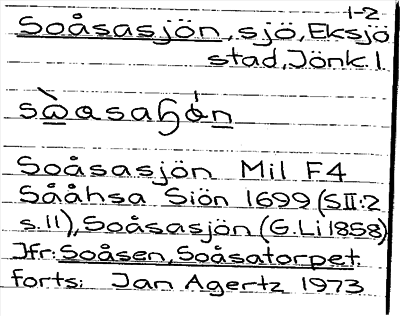 1-2
Soåsasjön, sjö, Eksjö
stad, Jönk. l.
Soåsasjön Mil F4
Sååhsa Siön 1699 (SII:2
s.11), Soåsasjön (G.Li 1858)
Jfr: Soåsen, Soåsatorpet.
forts: Jan Agertz 1973